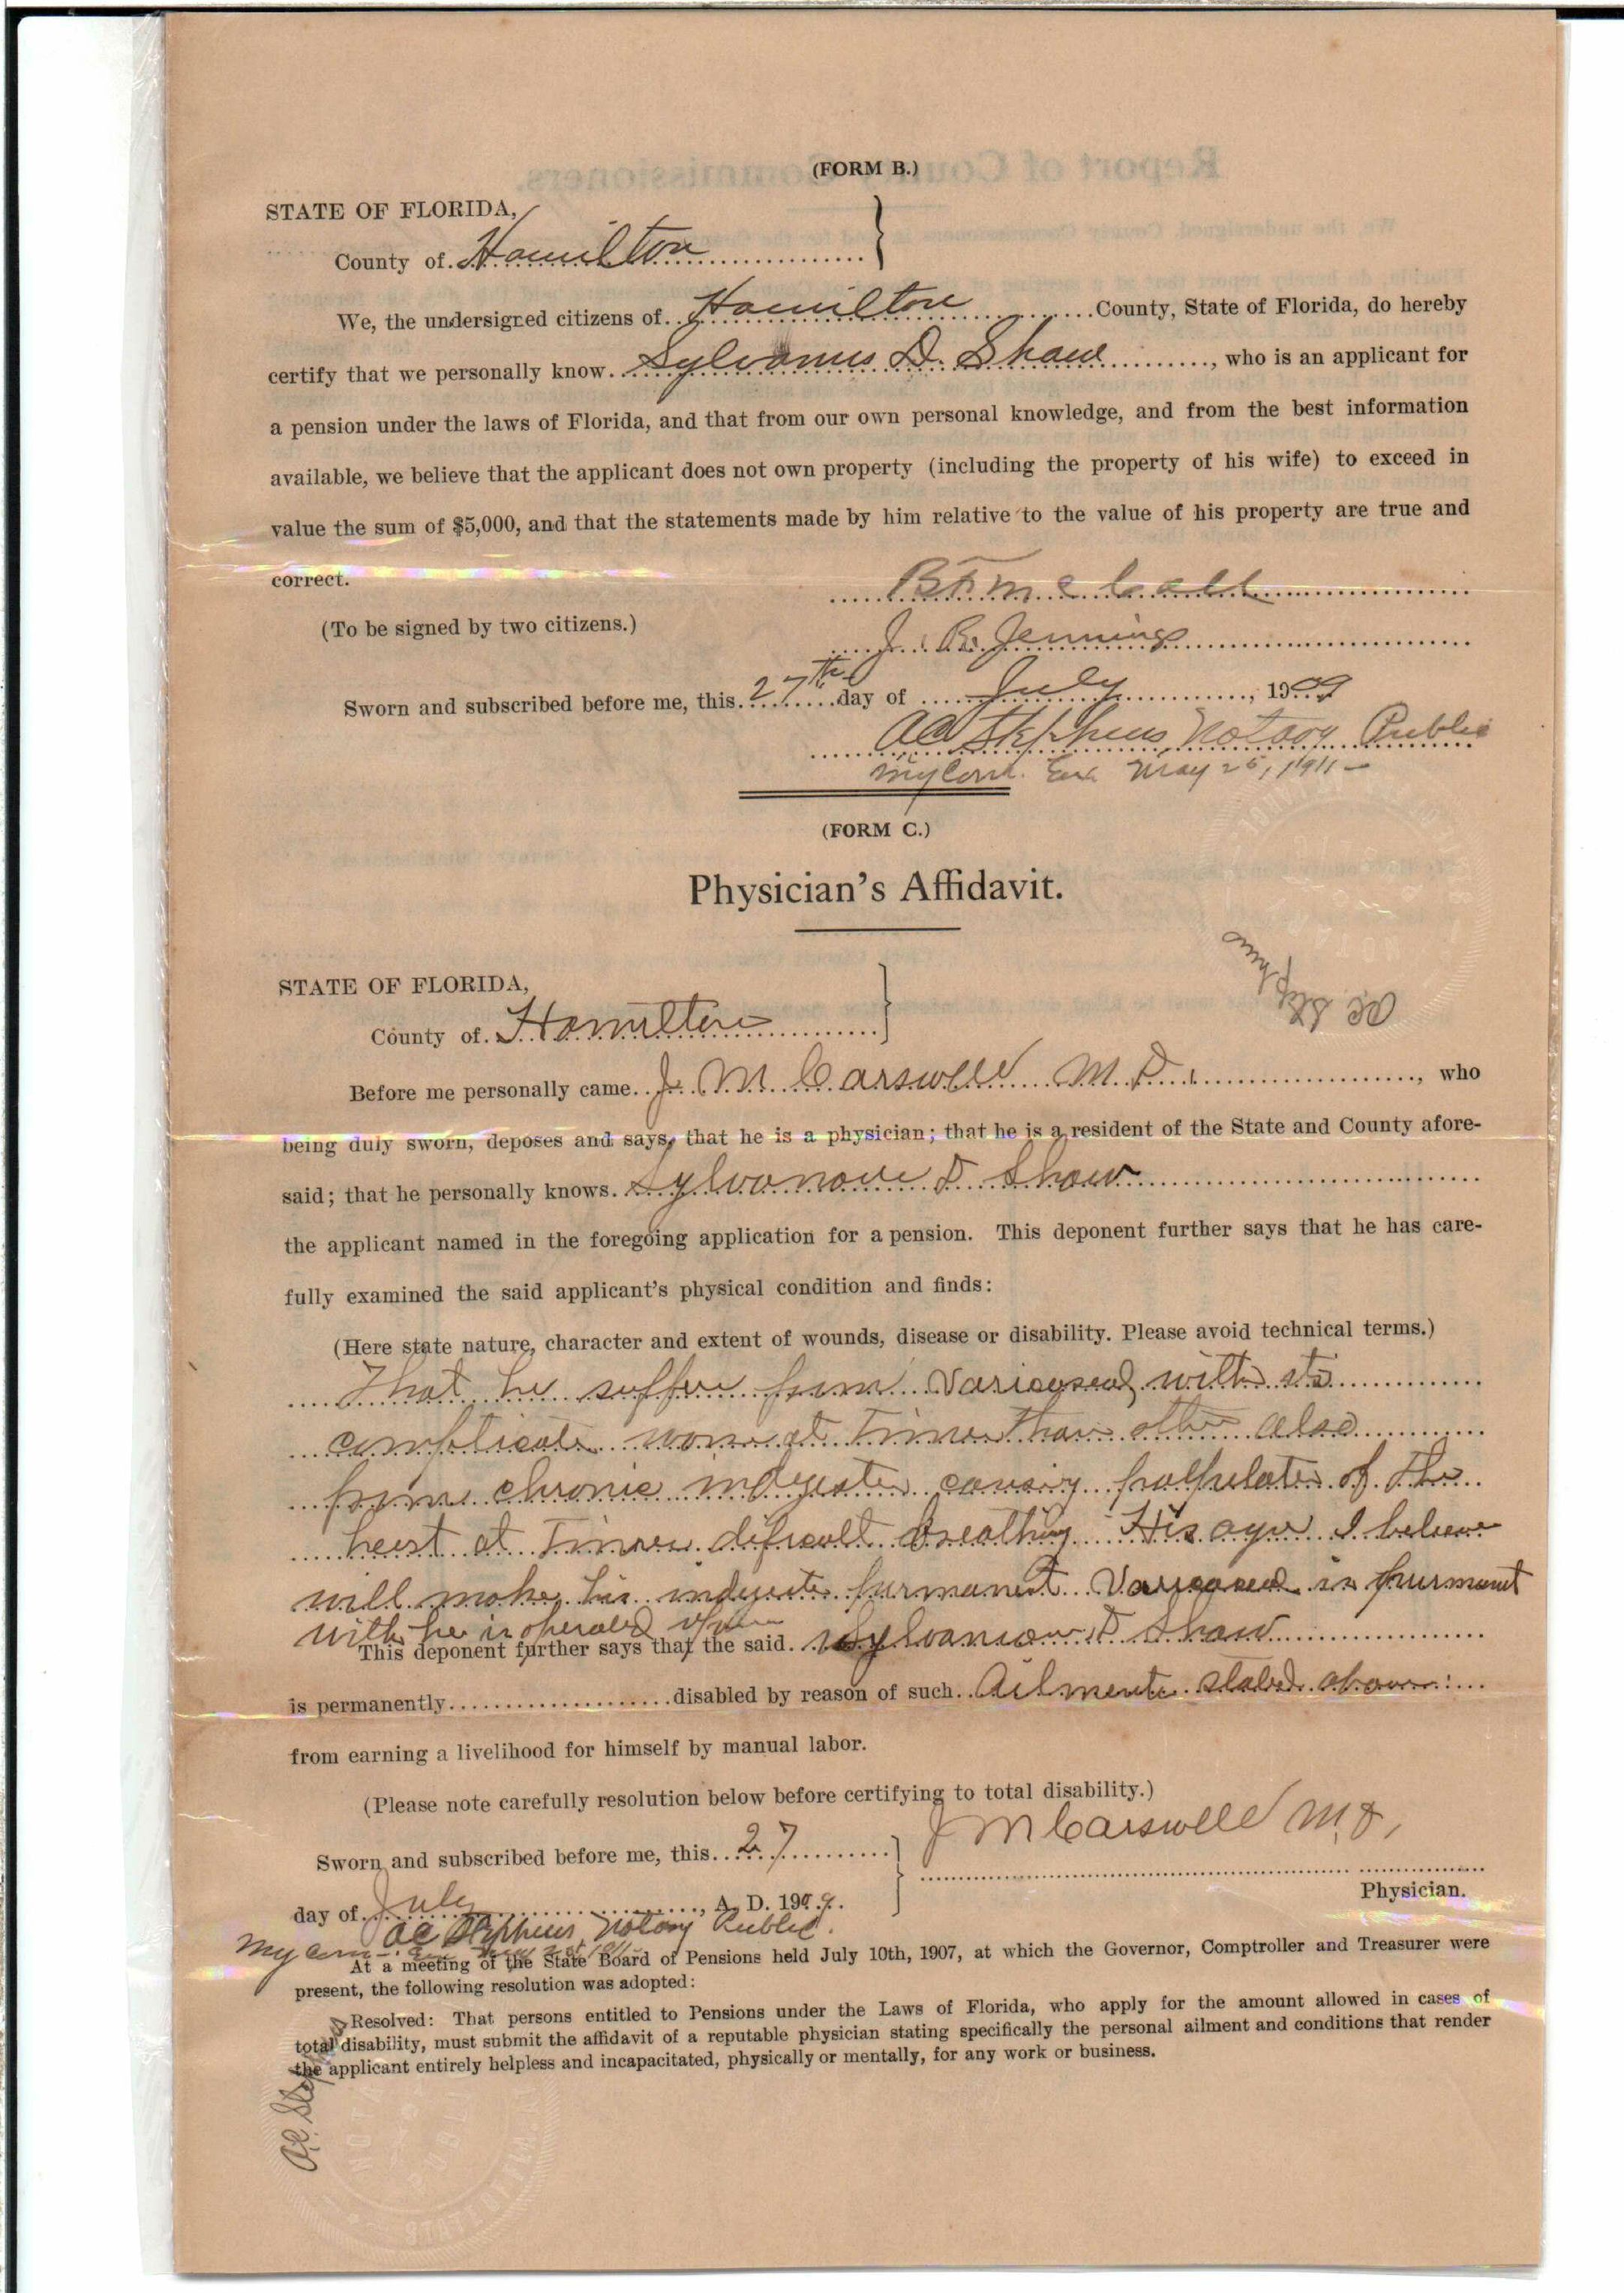 (FORM B.)
STATE OF FLORIDA,
County of Hamilton
We, the undersigned citizens of Hamilton County, State of Florida, do hereby
certify that we personally know Sylvanus D. Shaw, who is an applicant for
a pension under the laws of Florida, and that from our own personal knowledge, and from the best information
available, we believe that the applicant does not own property (including the property of his wife) to exceed in
value the sum of $5,000, and that the statements made by him relative to the value of his property are true and
correct.
B F McCall
(To be signed by two citizens.)
J. R. Jennings
Sworn and subscribed before me, this 27th day of July, 1909
AC Stephens, Notary Public
My Com. Ex. May 25, 1911
(FORM C.)
Physician's Affidavit.
STATE OF FLORIDA,
County of Hamilton
Before me personally came J. M Carswell M. D., who
being duly sworn, deposes and says, that he is a physician; that he is a resident of the State and County afore-
said; that he personally knows D Shaw
the applicant named in the foregoing application for a pension. This deponent further says that he has care-
fully examined the said applicant's physical condition and finds:
(Here state nature, character and extent of wounds, disease or disability. Please avoid technical terms.)
That he suffer from with its
worse at Times than other also
from chronic causing of the
at Times Breathing His age I believe
will make his is
he is operated upon
This deponent further says that the said D Shaw
is permanently disabled by reason of such Ailments stated above
from earning a livelihood for himself by manual labor.
(Please note carefully resolution below before certifying to total disability.)
J M Carswell M.D,
Sworn and subscribed before me, this 27
Physician.
day of July, A. D. 1909.
AC Stephens, Notary Public.
My com
At a meeting of the State Board of Pensions held July 10th, 1907, at which the Governor, Comptroller and Treasurer were
present, the following resolution was adopted:
Resolved: That persons entitled to Pensions under the Laws of Florida, who apply for the amount allowed in cases of
total disability, must submit the affidavit of a reputable physician stating specifically the personal ailment and conditions that render
the applicant entirely helpless and incapacitated, physically or mentally, for any work or business.
AC Stephens